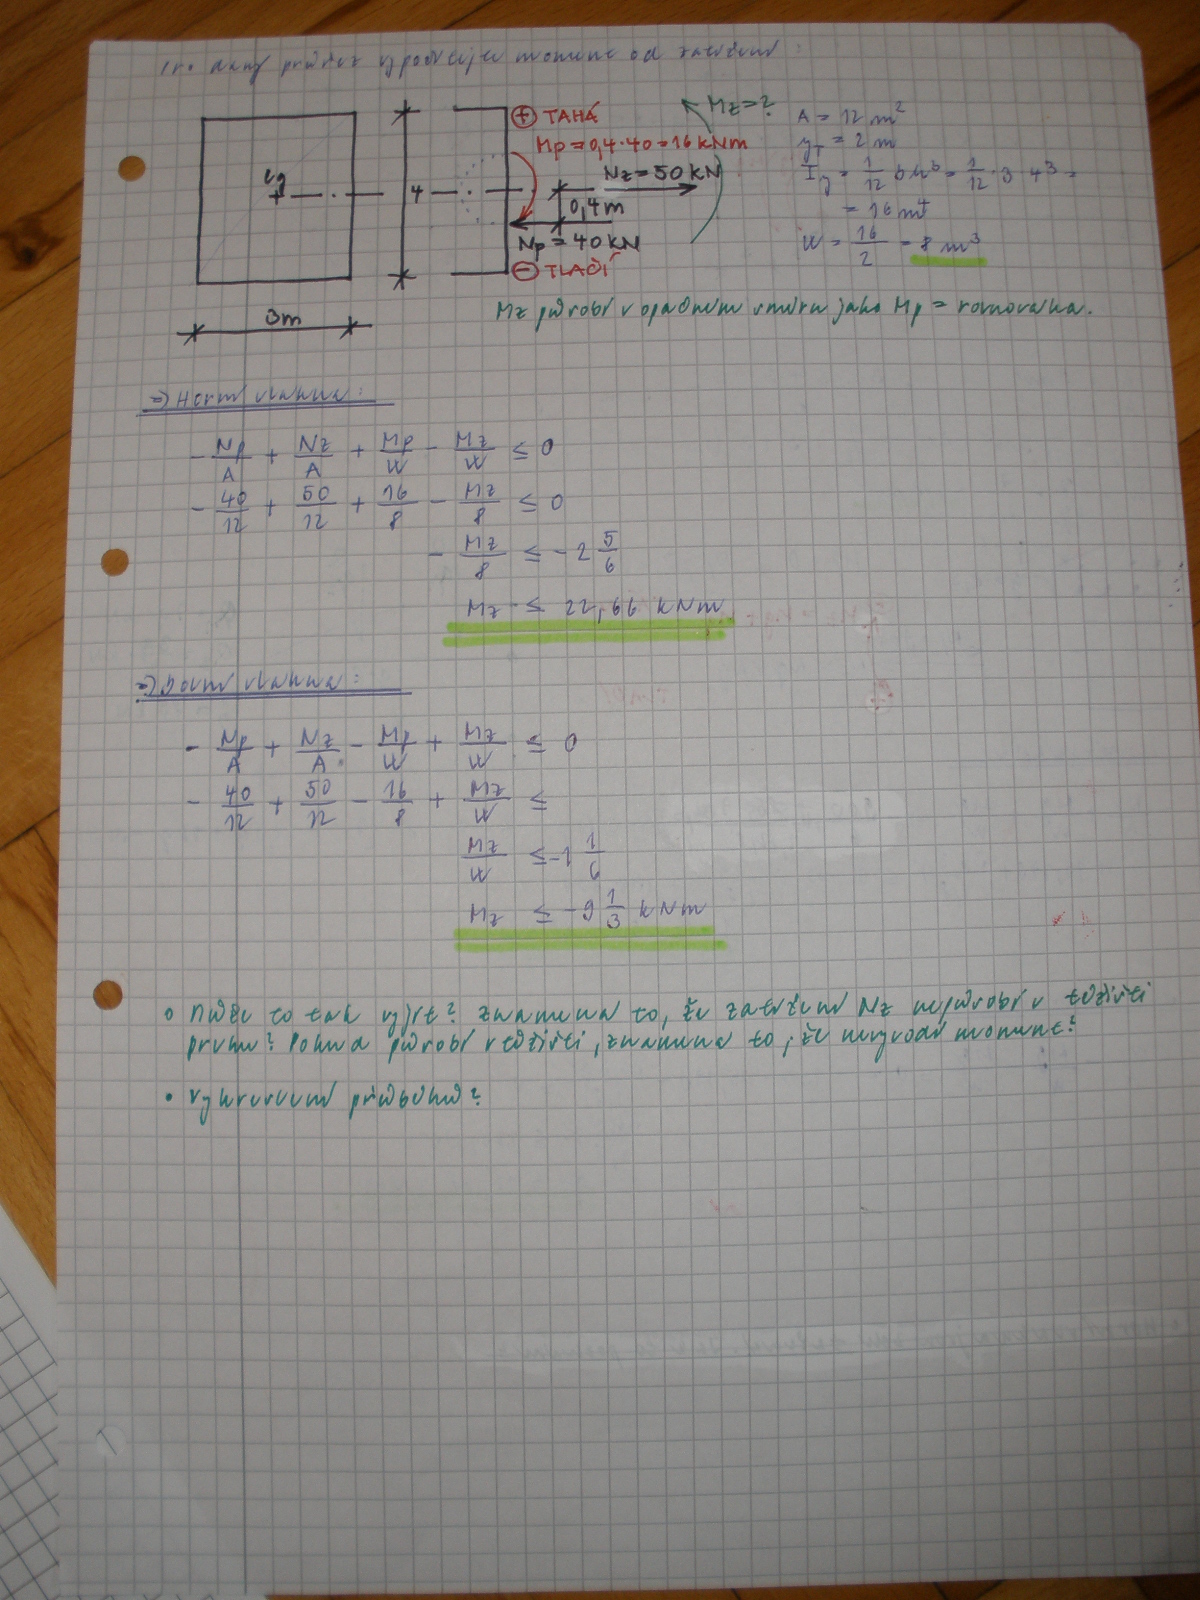 Pro daný průřez vypočítejte moment od zatížení:
⊕ TAHÁ
Mz=?
A = 12 m²
Mp=0,4·40=16 kNm
yT = 2 m
Nz=50 kN
Iy = 1/12 bh³ = 1/12 · 3 · 4³ =
cg
4
0,4m
= 16 m⁴
Np=40 kN
W = 16/2 = 8 m³
⊖ TLAČÍ
3m
Mz působí v opačném směru jako Mp = rovnováha.
=) Horní vlákna:
- Np/A + Nz/A + Mp/W - Mz/W ≤ 0
- 40/12 + 50/12 + 16/8 - Mz/8 ≤ 0
- Mz/8 ≤ -2 5/6
Mz ≤ 22,66 kNm
=) Dolní vlákna:
- Np/A + Nz/A - Mp/W + Mz/W ≤ 0
- 40/12 + 50/12 - 16/8 + Mz/W ≤
Mz/W ≤ -1 1/6
Mz ≤ -9 1/3 kNm
• Může to tak vyjít? znamená to, že zatížení Nz nepůsobí v těžišti
prvku? Pokud působí v těžišti, znamená to, že nevyvodí moment?
• Vykreslení průběhů?